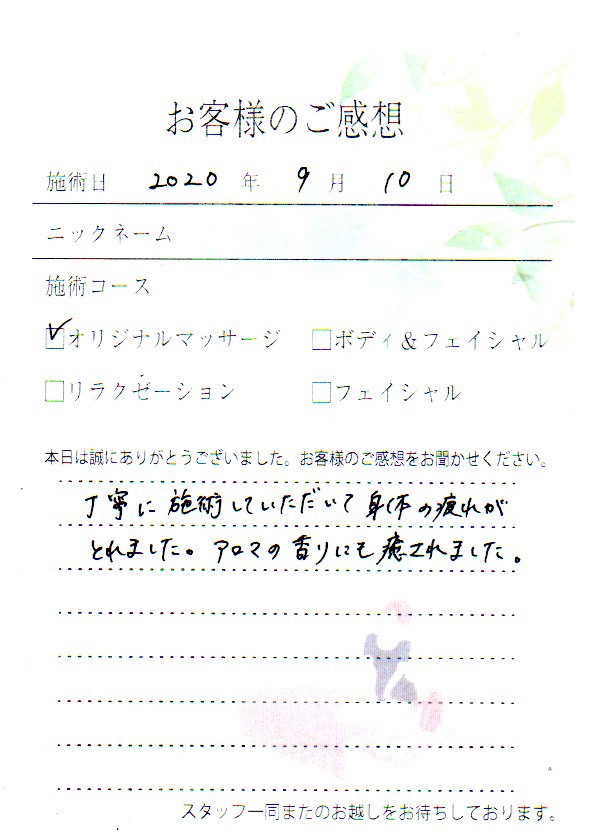 お客様のご感想
施術日 2020 年 9 月 10 日
ニックネーム
施術コース
オリジナルマッサージ ボディ&フェイシャル
リラクゼーション フェイシャル
本日は誠にありがとうございました。お客様のご感想をお聞かせください。
丁寧に施術していただいて身体の疲れが
とれました。アロマの香りにも癒されました。
スタッフ一同またのお越しをお待ちしております。